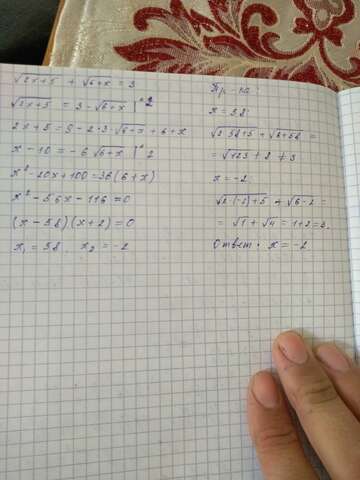 √2x+5 + √6+x = 3
√2x+5 = 3 - √6+x |^2
2x+5 = 9 - 2·3·√6+x + 6+x
x - 10 = -6√6+x |^2
x² - 20x + 100 = 36(6+x)
x² - 56x - 116 = 0
(x - 58)(x+2) = 0
x₁ = 58. x₂ = -2
x = 58.
√2·58+5 + √6+58 =
= √121 + 8 ≠ 3
x = -2.
√2·(-2)+5 + √6-2 =
= √1 + √4 = 1+2 = 3.
Ответ: x = -2